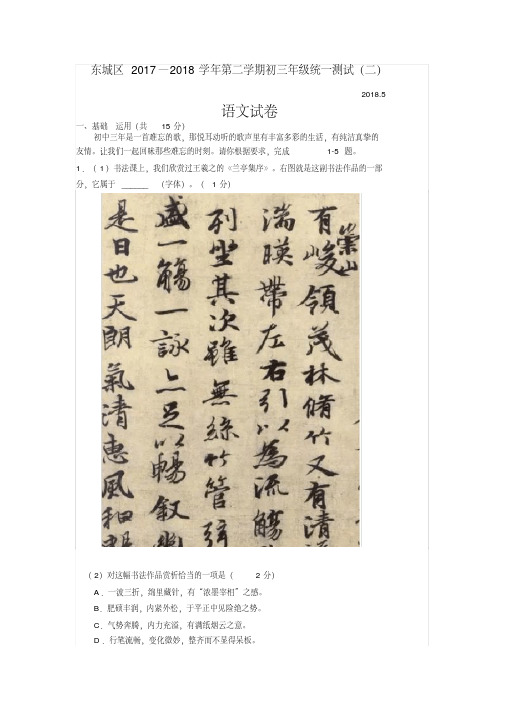 东城区 2017—2018 学年第二学期初三年级统一测试（二）
2018.5
语文试卷
一、基础 运用（共 15 分）
初中三年是一首难忘的歌，那悦耳动听的歌声里有丰富多彩的生活，有纯洁真挚的
友情。让我们一起回味那些难忘的时刻。请你根据要求，完成 1-5 题。
1．（1）书法课上，我们欣赏过王羲之的《兰亭集序》。右图就是这副书法作品的一部
分，它属于 ______ （字体）。（ 1 分）
有崇山峻領茂林脩竹又有清
湍暎帶左右引以為流觴
列坐其次雖無絲竹管弦
盛一觴一詠亦足以暢叙幽
是日也天朗氣清惠風和
（2）对这幅书法作品赏析恰当的一项是（ 2 分）
A．一波三折，绵里藏针，有“浓墨宰相”之感。
B．肥硕丰润，内紧外松，于平正中见险绝之势。
C．气势奔腾，内力充溢，有满纸烟云之意。
D．行笔流畅，变化微妙，整齐而不显得呆板。